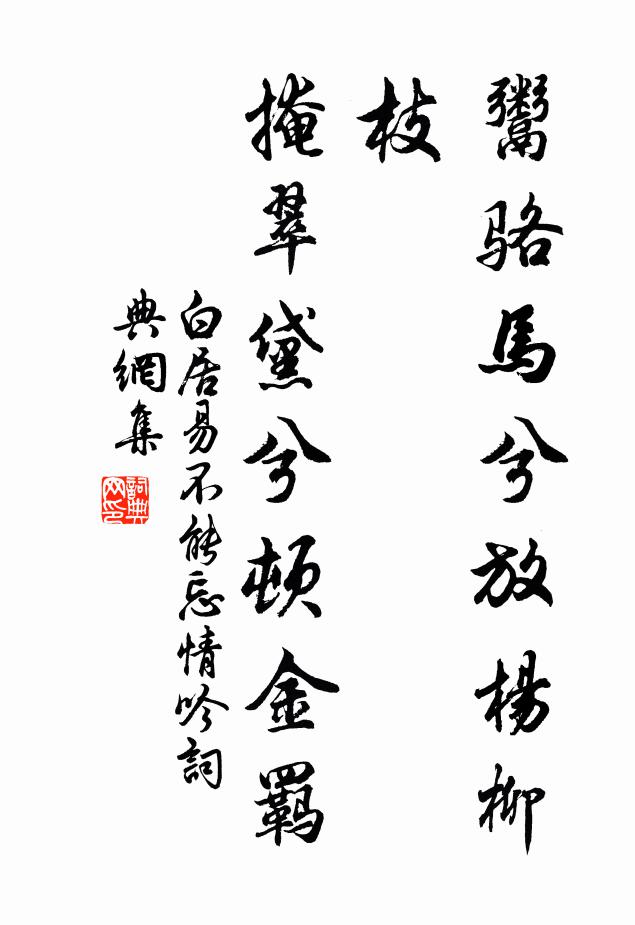 鬻骆馬兮放楊柳
枝
掩翠黛兮頓金羈
白居易不能忘情吟詞
典網集
詞典
网印